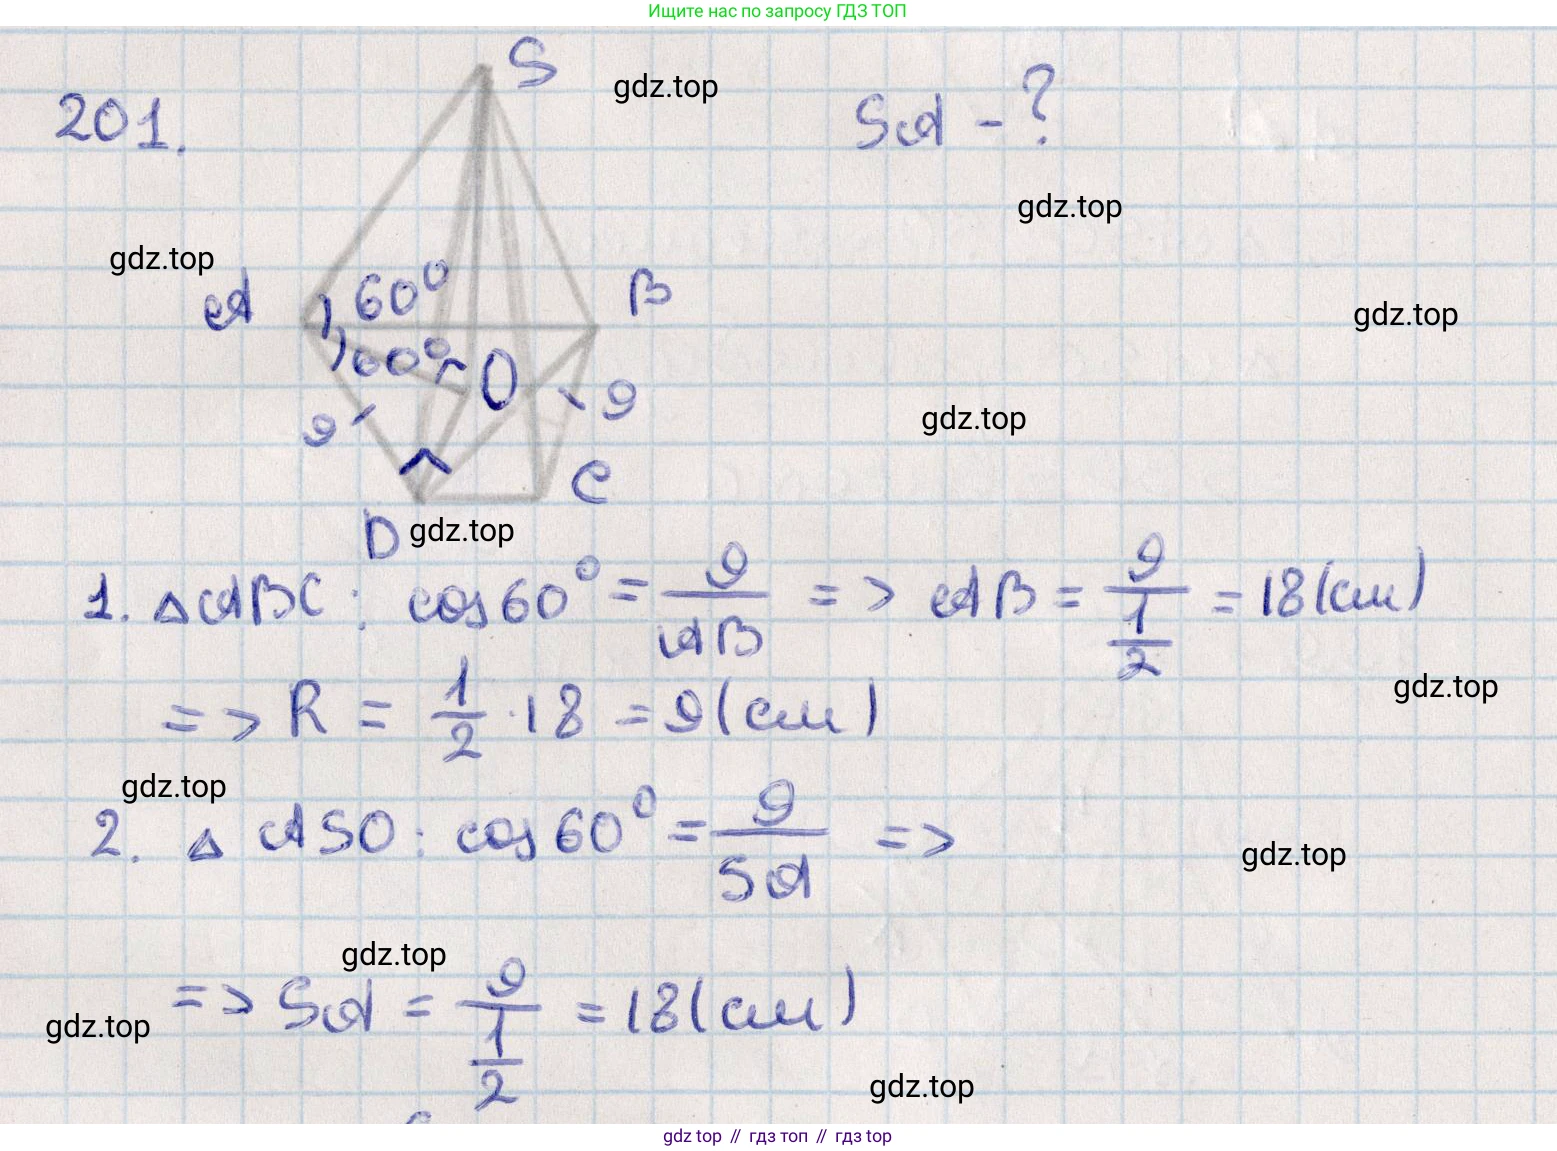 Ищите нас по запросу ГДЗ ТОП
S
gdz.top
201.
SA - ?
gdz.top
gdz.top
A
60⁰
B
gdz.top
60⁰
O
9
9
gdz.top
C
D
gdz.top
1. △ABC : cos60⁰ = 9/AB => AB = 9/(1/2) = 18(см)
gdz.top
=> R = 1/2 · 18 = 9(см)
gdz.top
2. △ ASO : cos60⁰ = 9/SA =>
gdz.top
gdz.top
=> SA = 9/(1/2) = 18(см)
gdz.top
gdz.top
gdz top // гдз топ // гдз top